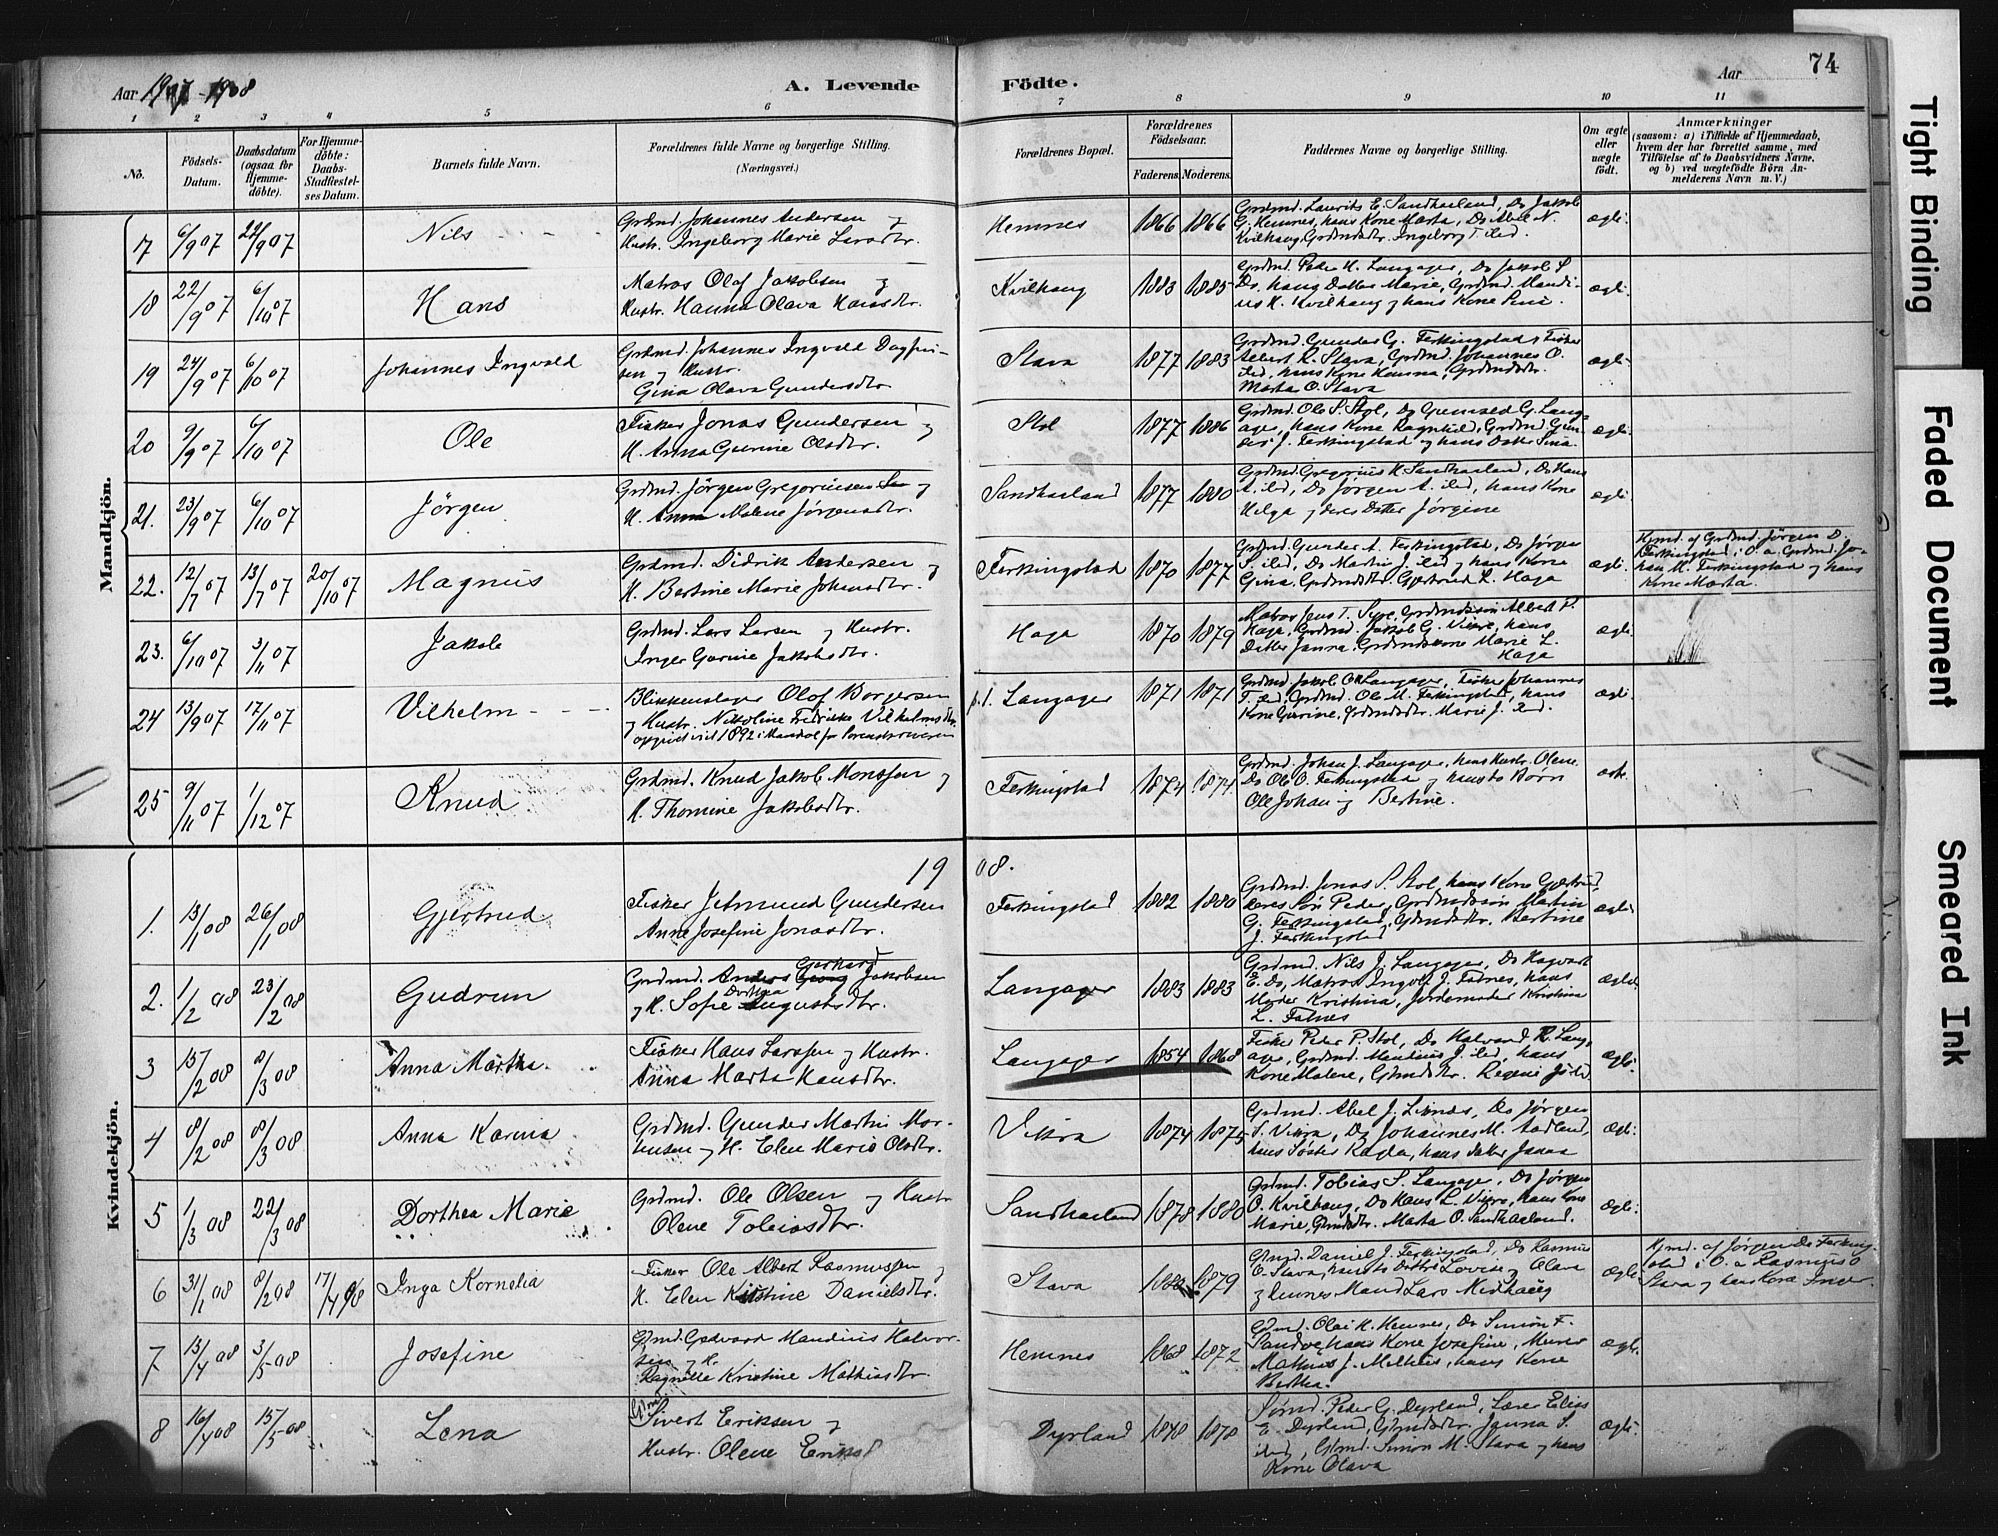 Aar 1907-1908
A. Levende
Födte.
Aar
74
1 2 3 4 5 6 7 8 9 10 11
No.
Födsels-Datum.
Daabsdatum (ogsaa for Hjemme-döbte).
For Hjemme-döbte: Daabs-Stadfæstel-ses Datum.
Barnets fulde Navn.
Forældrenes fulde Navne og borgerlige Stilling.
(Næringsvei.)
Forældrenes Bopæl.
Forældrenes Födselsaar.
Faderens.
Moderens.
Faddernes Navne og borgerlige Stilling.
Om ægte eller uægte födt.
Anmærkninger
(saasom: a) i Tilfælde af Hjemmedaab, hvem der har forrettet samme, med Tilföielse af to Daabsvidners Navne, og b) ved uægtefödte Börn An-melderens Navn m. V.)
Mandkjön.
17 6/9 07 22/9 07 Nils
Grdmd. Johannes Andersen og
Hustr. Ingeborg Marie Larsdtr.
Hemnes 1866 1866
Grdmd. Laurits E. Sandhaaland, Do Jakob
G. Hemnes, hans Kone Marta, Do Abel N.
Kvilhaug, Grdmdsdtr. Ingeborg T. ibd.
ægte.
18 22/9 07 6/10 07 Hans
Matros Olaf Jakobsen og
Hustr. Hanna Olava Hansdtr.
Kvilhaug 1883 1885
Grdmd. Peder H. Langager, Do Jakob S
Do, hans Datter Marie, Grdmd. Mandi-
us H. Kvilhaug og hans Kone
ægte.
19 24/9 07 6/10 07 Johannes Ingvald
Grdmd. Johannes Ingvald Dagfin-
sen og Hustr.
Gina Olava Gundersdtr.
Stava 1877 1883
Grdmd. Gunder G. Ferkingstad, Fisker
Albert R. Stava, Grdmd. Johannes O.
ibd, hans Kone Hanna, Grdmdsdtr.
Marta O. Stava
ægte.
20 9/9 07 6/10 07 Ole
Fisker Jonas Gundersen og
H. Anna Gurine Olsdtr.
Stol 1877 1886
Grdmd. Ole S. Stol, Do G. Lang-
age, hans Kone Ragnhild, Grdmd Gun-
der J. Ferkingstad og hans Datter Sina.
ægte.
21. 23/9 07 6/10 07 Jörgen
Grdmd. Jörgen Gregoriusen og
H. Anna Malene Jørgensdtr.
Sandhaaland 1877 1880
Grdmd. Gregorius H. Sandhaaland, Do Hans
A. ibd, Do Jørgen A. ibd, hans Kone
Helga og deres Datter Jørgine
ægte
22. 12/7 07 13/7 07 20/10 07 Magnus
Grdmd. Didrik Andersen og
H. Bertine Marie Johansdtr.
Ferkingstad 1870 1877
Grdmd. Gunder A. Ferkingstad, Do Jørgen
S. ibd, Do Martin J. ibd og hans Kone
Gina, Grdmdsdtr Gjertrud L. Haga
ægte.
Hjmd. af Grdmd. Jörgen D.
Ferkingstad i O. a. Grdmd. Jo-
han M. Ferkingstad og hans
Kone Marta.
23. 6/10 07 3/11 07 Jakob
Grdmd. Lars Larsen og Hustr.
Inger Gurine Jakobsdtr.
Haga 1870 1879
Matros Jens T. Syre, Grdmdssön Albert P.
Haga, Grdmd. Jakob G. Vikre, hans
Datter Janna, Grdmdskone Marie L.
Haga
ægte.
24 13/9 07 17/11 07 Vilhelm
Blikkenslager Olof Borgersen
og Hustr. Nikoline Fredrikke Vilhelmsdtr.
opgivet viet 1892 i Mandal
p.t. Langager 1871 1871
Grdmd. Jakob O. Langager, Fisker Johannes
T. ibd, Grdmd. Ole M. Ferkingstad, hans
Kone Gurine, Grdmdsdtr. Marie J. ibd.
ægte.
25 9/11 07 1/12 07 Knud
Grdmd. Knud Jakob Monssen og
H. Thomine Jakobsdtr.
Ferkingstad 1874 1874
Grdmd. Johan J. Langager, hans Hustr. Olene.
Do Ole O. Ferkingstad og hans to Börn
Ole Johan og Bertine.
ægte.
1908.
Kvindekjön.
1. 13/1 08 26/1 08 Gjertrud
Fisker Jetmund Gundersen
Anne Josefine Jonasdtr.
Ferkingstad 1882 1880
Grdmd. Jonas P. Stol, hans Kone Gjertrud,
deres Sön Peder, Grdmdssön Martin
G. Ferkingstad, Gdmdsdtr. Bertine
J. Ferkingstad
ægte
2. 1/2 08 23/2 08 Gudrun
Grdmd. Anders Gerhard Jakobsen
og H. Sofie Dorthea Augustsdtr.
Langager 1883 1883
Grdmd. Nils J. Langager, Do Hagvart
E. Do, Matros Ingolf J. Falnes, hans
Moder Kristina, Jordemoder Kristina
L. Falnes
ægte.
3 15/2 08 8/3 08 Anna Martha.
Fisker Hans Larssen og Hustr.
Anna Marta Hansdtr.
Langager 1854 1868
Fisker Peter P. Stol, Do Halvard R. Lang-
age, Grdmd. Mandius J. ibd, hans
Kone Malene, Gdmdsdtr. Regine J. ibd.
ægte.
4 8/2 08 8/3 08 Anna Karina
Grdmd. Gunder Martin Mor-
tensen og H. Elen Marie Olsdtr.
Vikra 1874 1875
Grdmd. Abel J. Liknes, Do Jörgen
S. Vikra, Do Johannes M. Aadland,
hans Söster Ragla, hans Datter Janna
ægte.
5 1/3 08 22/3 08 Dorthea Marie
Grdmd. Ole Olsen og Hustr
Olene Tobiasdtr.
Sandhaaland 1878 1880
Grdmd. Tobias S. Langager, Do Jörgen
O. Kvilhaug, Do Hans L. Vikre, hans Kone
Marie, Gdmdsdtr. Marta O. Sandhaaland.
ægte.
6 31/1 08 8/2 08 17/4 08 Inga Kornelia
Fisker Ole Albert Rasmussen og
H. Elen Kirstine Danielsdtr.
Stava 1879
Gdmd. Daniel J. Ferkingstad, Do Rasmus
O. Stava, hans to Döttre Lovise og Olava
og hennes Mand Lars Midhaug
ægte
Hjmd. af Jörgen D. Ferking-
stad i O. a Rasmus O
Stava og hans Kone Inger
7 13/4 08 3/5 08 Josefine
Gdmd. Edvard Mandius Halvor-
sen og H.
Ragnille Kristine Mathiasdtr.
Hemnes 1868 1872
Gdmd. Olai H. Hemnes, Do Simon F.
Sandve, hans Kone Josefine, Murer
Mathias J. Melhus, hans Kone
Bertha.
ægte.
8 16/4 08 15/5 08 Lena
Gdmd
Sivert Eriksen og
Hustr. Olene
Dyrland 1878 1878
Gdmd. Peder G. Dyrland, Lærer Elias
E. Dyrland, Gdmdsdtr. Janna S.
ibd, Gdmd. Simon M. Stava og hans
Kone Olava
ægte.
Tight Binding
Faded Document
Smeared Ink